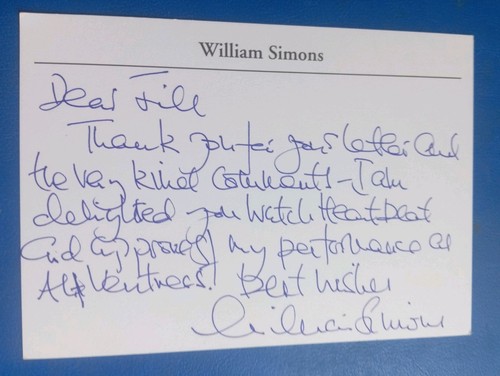 William Simons
Dear Jill
Thank you for your letter and
the very kind comments - I am
delighted you watch Heartbeat
and approve of my performance as
Alf Ventress! Best wishes
William Simons